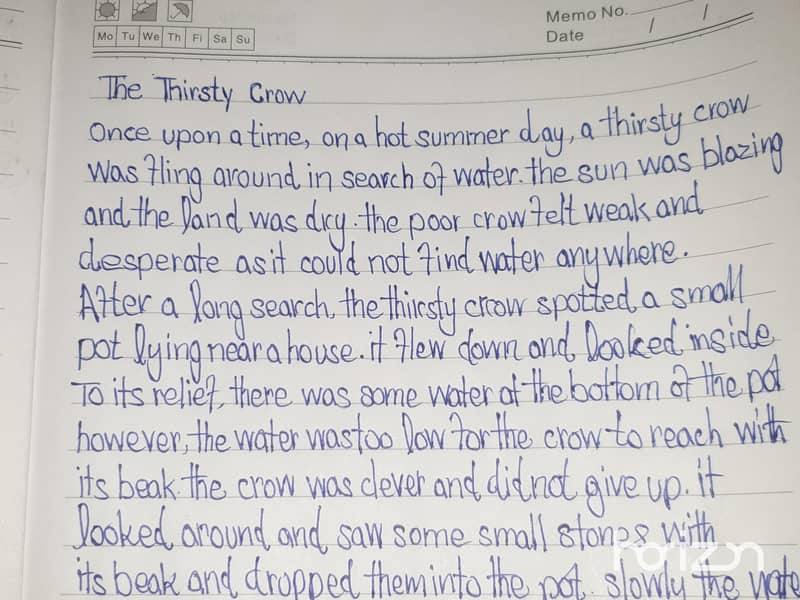 Memo No.
Date / /
Mo Tu We Th Fi Sa Su
The Thirsty Crow
Once upon a time, on a hot summer day, a thirsty crow
was fling around in search of water. the sun was blazing
and the land was dry. the poor crow felt weak and
desperate as it could not find water anywhere.
After a long search, the thirsty crow spotted a small
pot lying near a house. it flew down and looked inside
To its relief, there was some water at the bottom of the pot
however, the water was too low for the crow to reach with
its beak. the crow was clever and did not give up. it
looked around and saw some small stones with
its beak and dropped them into the pot. slowly the wate
horizon